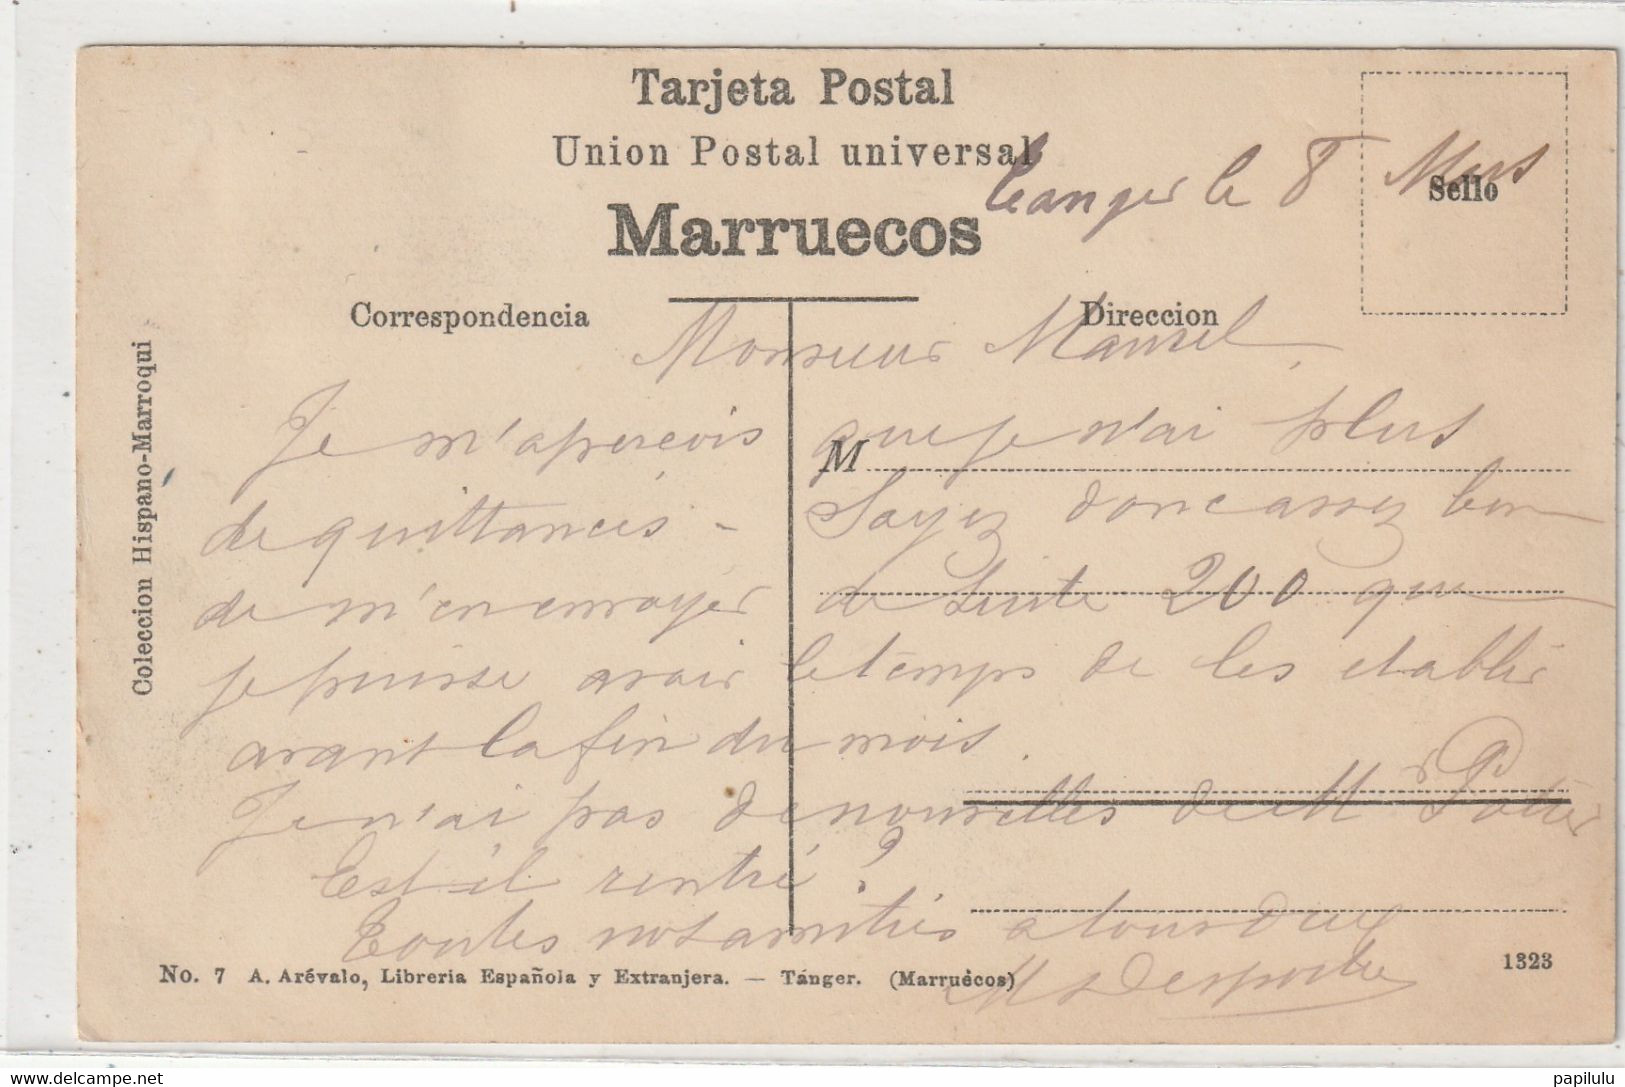 Tarjeta Postal
Union Postal universal
Tanger le 8 Mars
Sello
Marruecos
Correspondencia
Direccion
Monsieur
Je m'aperçois que je n'ai plus
M
de quittances - Soyez donc assez bon
de m'en envoyer de suite 200 que
je puisse avoir le temps de les etablir
avant la fin du mois.
Je n'ai pas de nouvelles de M Potier
Est-il rentré ?
Toutes nos amitiés a tous deux
No. 7 A. Arévalo, Libreria Española y Extranjera. — Tánger. (Marruécos)
1323
Coleccion Hispano-Marroqui
www.delcampe.net
papilulu